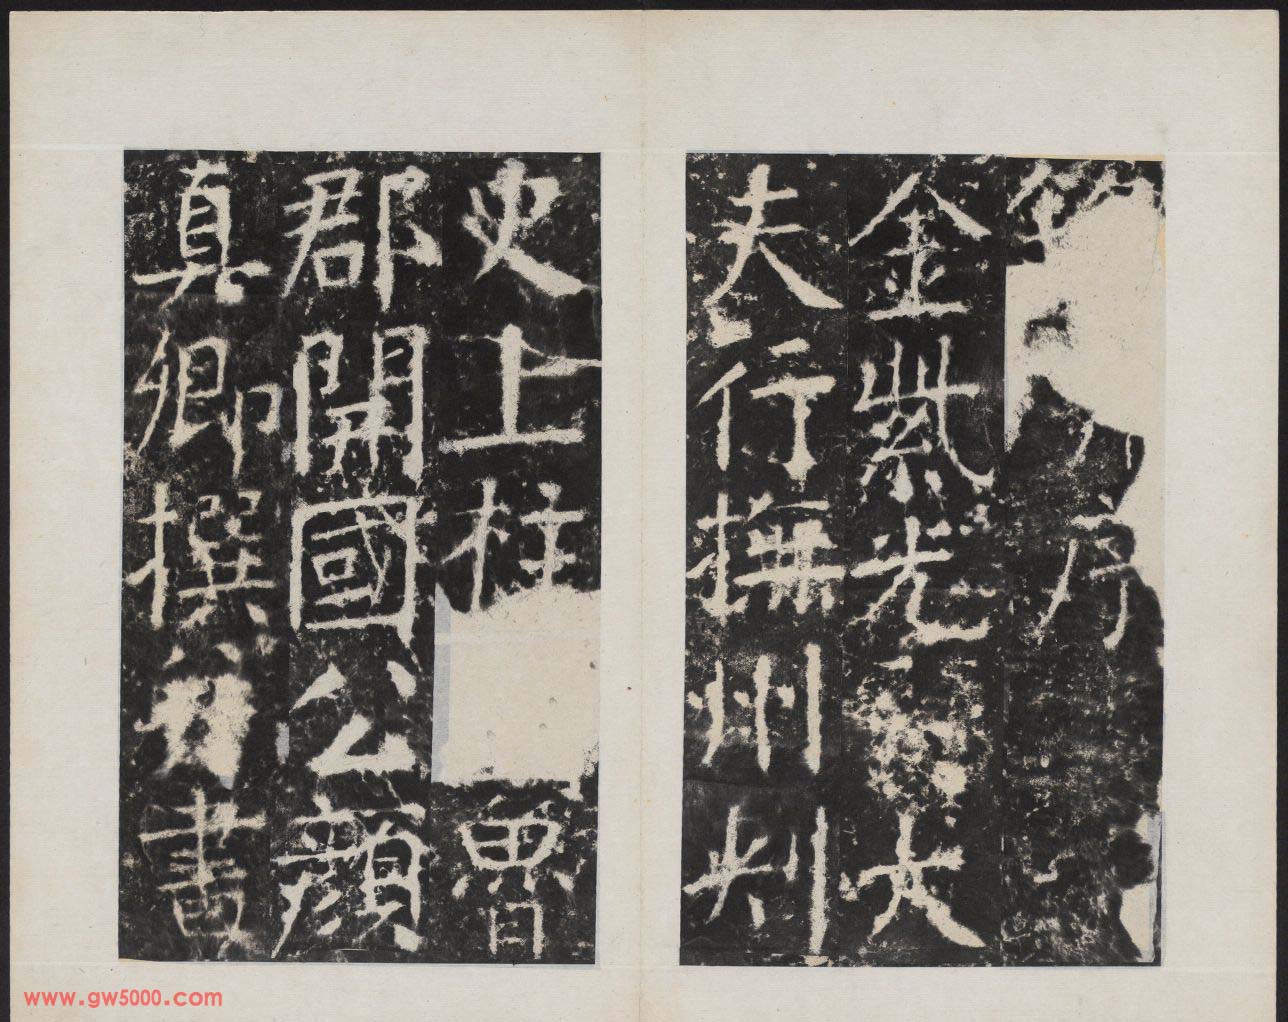 序
金紫光大
夫行撫州刺
史上柱魯
郡開國公顏
真卿撰并書
www.gw5000.com